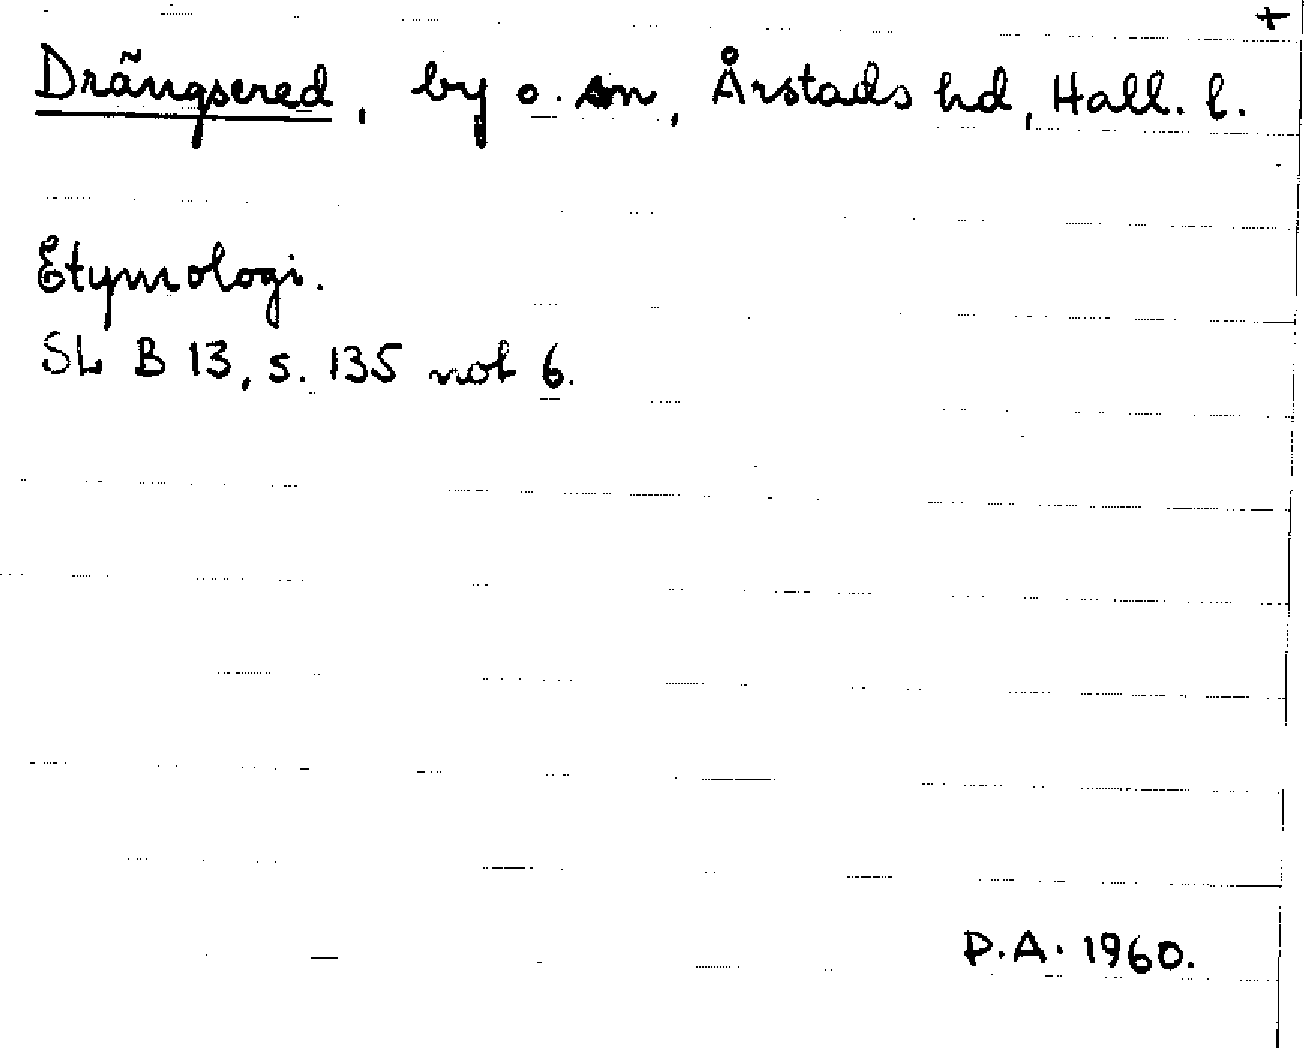 +
Drängsered, by o. sn, Årstads hd, Hall. l.
Etymologi.
SL B 13, s. 135 not 6.
P.A. 1960.